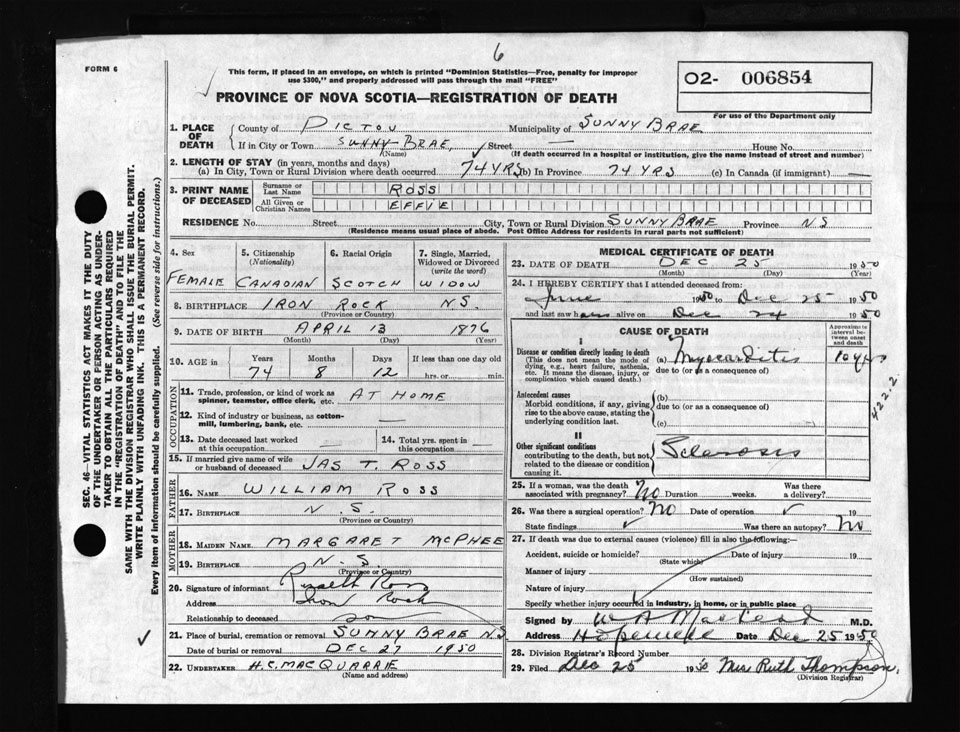 6
FORM 6
This form, if placed in an envelope, on which is printed "Dominion Statistics—Free, penalty for improper
use $300," and properly addressed will pass through the mail "FREE"
O2- 006854
For use of the Department only
PROVINCE OF NOVA SCOTIA—REGISTRATION OF DEATH
SEC. 46—VITAL STATISTICS ACT MAKES IT THE DUTY
OF THE UNDERTAKER OR PERSON ACTING AS UNDER-
TAKER TO OBTAIN ALL THE PARTICULARS REQUIRED
IN THE "REGISTRATION OF DEATH" AND TO FILE THE
SAME WITH THE DIVISION REGISTRAR WHO SHALL ISSUE THE BURIAL PERMIT.
WRITE PLAINLY WITH UNFADING INK. THIS IS A PERMANENT RECORD.
Every item of information should be carefully supplied. (See reverse side for instructions.)
1. PLACE OF DEATH County of PICTOU Municipality of SUNNY BRAE
If in City or Town SUNNY BRAE, Street — House No.
(Name) (If death occurred in a hospital or institution, give the name instead of street and number)
2. LENGTH OF STAY (in years, months and days)
(a) In City, Town or Rural Division where death occurred 74 YRS (b) In Province 74 YRS (c) In Canada (if immigrant) —
3. PRINT NAME OF DECEASED Surname or Last Name ROSS
All Given or Christian Names EFFIE
RESIDENCE No. Street City, Town or Rural Division SUNNY BRAE Province N S
(Residence means usual place of abode. Post Office Address for residents in rural parts not sufficient)
4. Sex 5. Citizenship 6. Racial Origin 7. Single, Married,
(Nationality) Widowed or Divorced
(write the word)
FEMALE CANADIAN SCOTCH WIDOW
8. BIRTHPLACE IRON ROCK N.S.
(Province or Country)
9. DATE OF BIRTH APRIL 13 1876
(Month) (Day) (Year)
10. AGE in Years Months Days If less than one day old
74 8 12 hrs. or min.
OCCUPATION
11. Trade, profession, or kind of work as
spinner, teamster, office clerk, etc. AT HOME
12. Kind of industry or business, as cotton-
mill, lumbering, bank, etc. —
13. Date deceased last worked
at this occupation — 14. Total yrs. spent in
this occupation —
15. If married give name of wife
or husband of deceased JAS T. ROSS
FATHER
16. NAME WILLIAM ROSS
17. BIRTHPLACE N. S.
(Province or Country)
MOTHER
18. MAIDEN NAME. MARGARET MCPHEE
19. BIRTHPLACE N. S.
(Province or Country)
20. Signature of informant Ross
Address Iron Rock
Relationship to deceased son
21. Place of burial, cremation or removal SUNNY BRAE N.S
Date of burial or removal DEC 27 1950
22. UNDERTAKER H.C. MACQUARRIE
(Name and address)
MEDICAL CERTIFICATE OF DEATH
23. DATE OF DEATH DEC 25 1950
(Month) (Day) (Year)
24. I HEREBY CERTIFY that I attended deceased from:
June 1950 to Dec 25 1950
and last saw her alive on Dec 24 1950
CAUSE OF DEATH
Approximate interval between onset and death
I
Disease or condition directly leading to death
(This does not mean the mode of
dying, e.g., heart failure, asthenia,
etc. It means the disease, injury, or
complication which caused death.)
(a) Myocarditis 10 yrs
due to (or as a consequence of)
Antecedent causes
Morbid conditions, if any, giving
rise to the above cause, stating the
underlying condition last.
(b)
due to (or as a consequence of)
(c)
422.2
II
Other significant conditions
contributing to the death, but not
related to the disease or condition
causing it.
Sclerosis
25. If a woman, was the death
associated with pregnancy? No Duration weeks. Was there
a delivery?
26. Was there a surgical operation? No Date of operation 19
State findings Was there an autopsy? No
27. If death was due to external causes (violence) fill in also the following:
Accident, suicide or homicide? Date of injury 19
(State which)
Manner of injury
(How sustained)
Nature of injury
Specify whether injury occurred in industry, in home, or in public place
Signed by W A MacLeod M.D.
Address Hopewell Date Dec 25 1950
28. Division Registrar's Record Number
29. Filed Dec 25 1950 Mrs Ruth Thompson.
(Division Registrar)